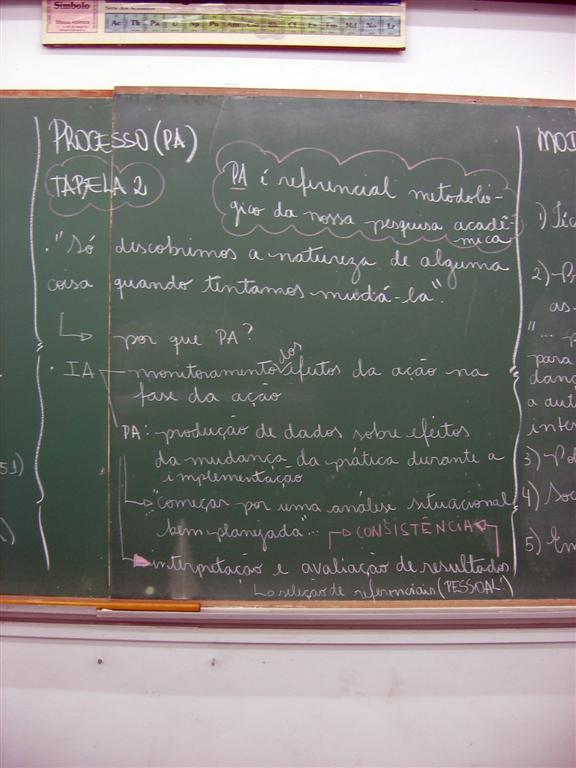 Símbolo
Ac Th Pa U Np Pu Am Md No Lr
PROCESSO (PA)
TABELA 2
PA é referencial metodoló-
gico da nossa pesquisa acadê-
mica
• "Só descobrimos a natureza de alguma
coisa quando tentamos mudá-la".
por que PA?
• IA - monitoramento dos efeitos da ação na
fase da ação
PA: produção de dados sobre efeitos
da mudança da prática durante a
implementação
"começar por uma análise situacional
bem planejada"...
CONSISTÊNCIA
interpretação e avaliação de resultados
seleção de referenciais (PESSOAL)
51)
1)
2)
as-
"...
para
danç
a aut
inte
3) Po
4) Soc
5) Em